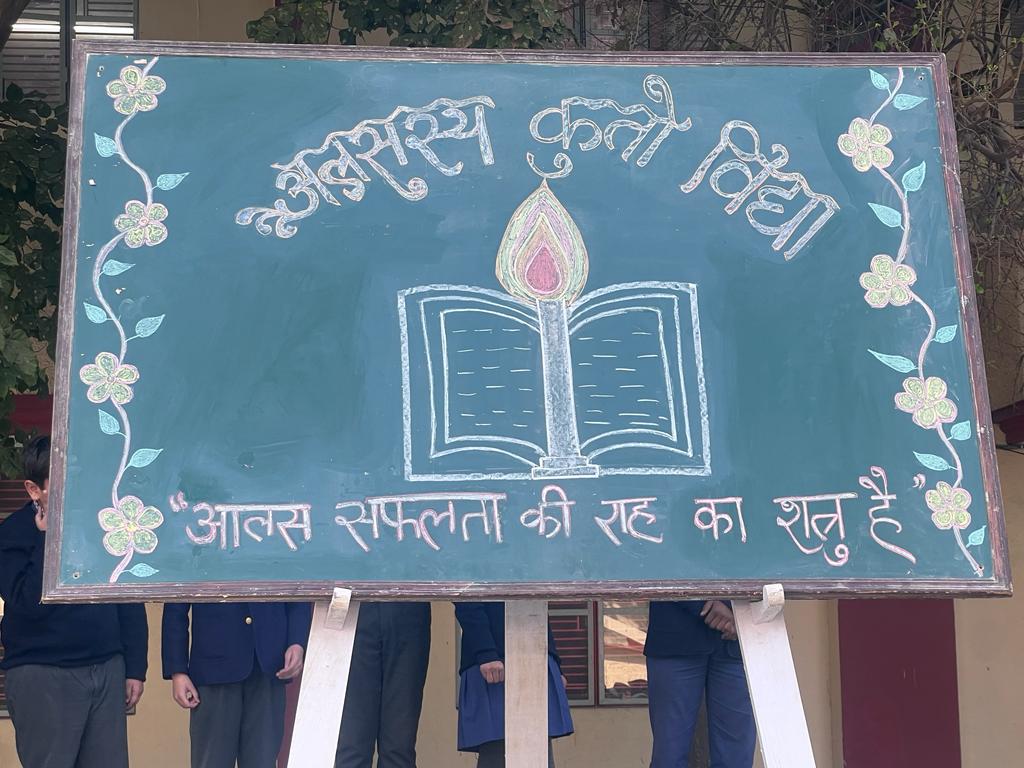 अलसस्य कुतो विद्या
"आलस सफलता की राह का शत्रु है"